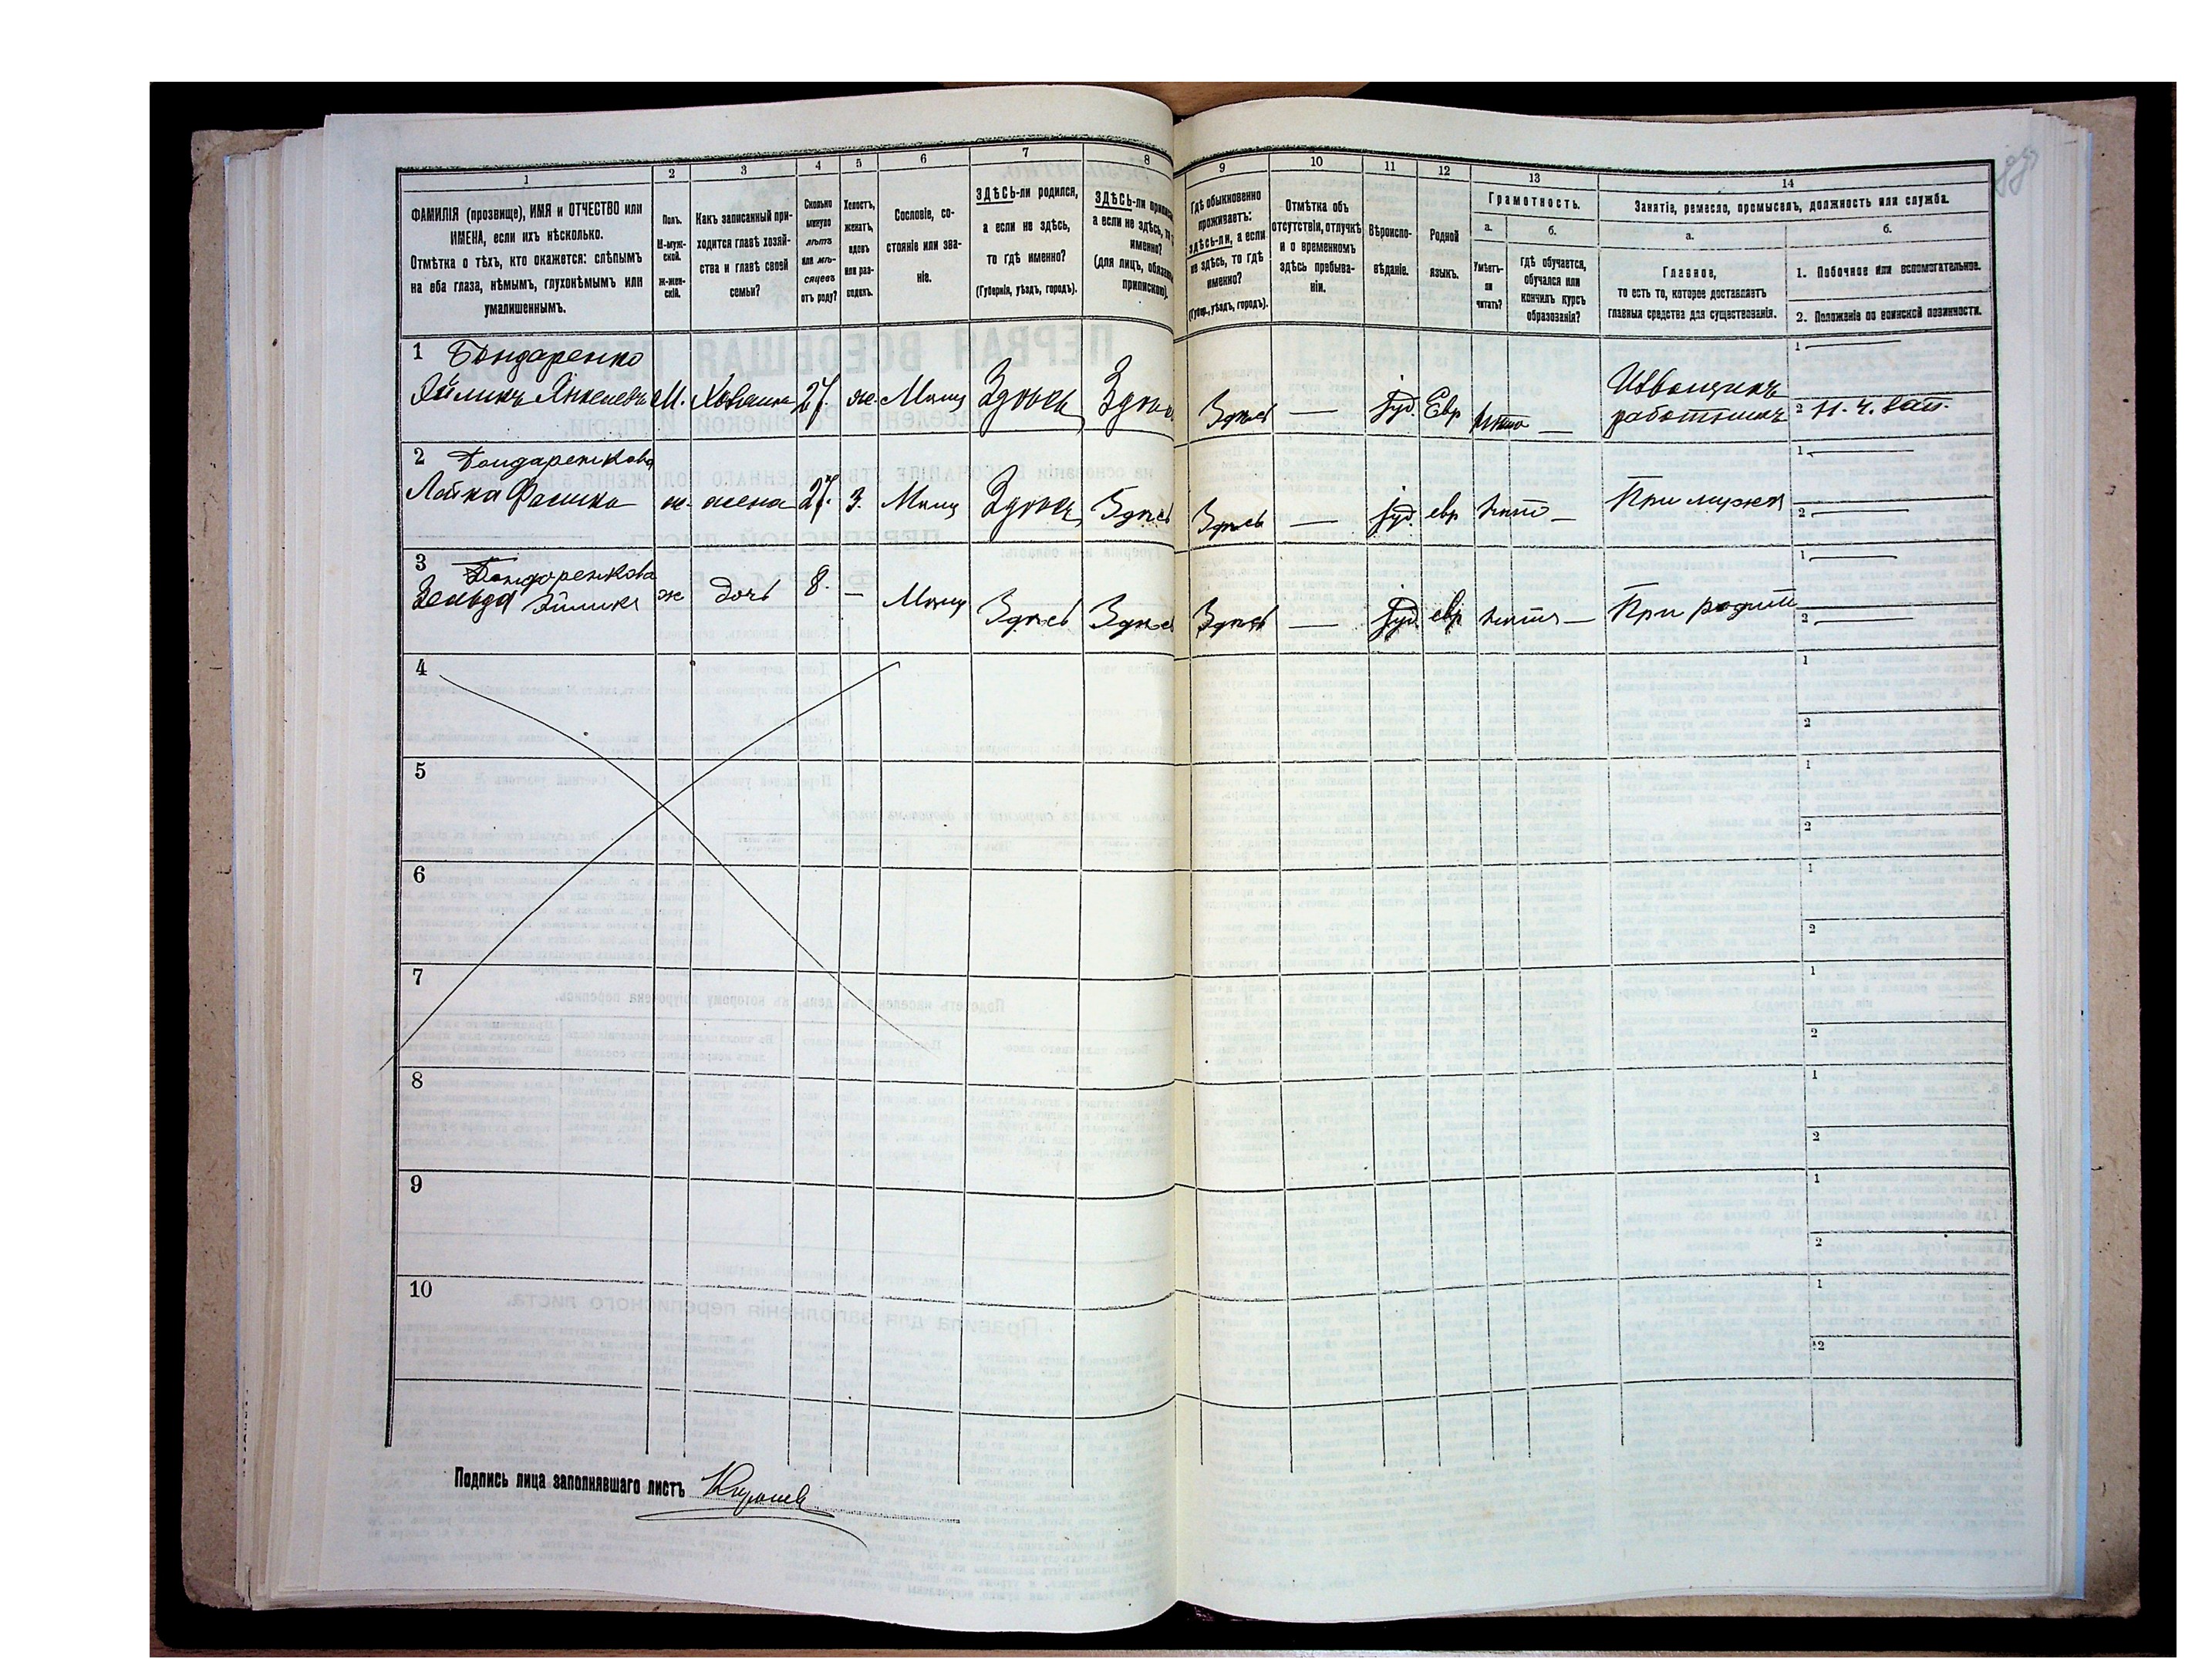 1 2 3 4 5 6 7 8 9 10 11 12 13 14
ФАМИЛІЯ (прозвище), ИМЯ и ОТЧЕСТВО или
ИМЕНА, если ихъ нѣсколько.
Отмѣтка о тѣхъ, кто окажется: слѣпымъ
на оба глаза, нѣмымъ, глухонѣмымъ или
умалишеннымъ.
Полъ.
М-муж-
ской.
Ж-жен-
скій.
Какъ записанный при-
ходится главѣ хозяй-
ства и главѣ своей
семьи?
Сколько
минуло
лѣтъ
или мѣ-
сяцевъ
отъ роду?
Холостъ,
женатъ,
вдовъ
или раз-
веденъ.
Сословіе, со-
стояніе или зва-
ніе.
ЗДѢСЬ-ли родился,
а если не здѣсь,
то гдѣ именно?
(Губернія, уѣздъ, городъ).
ЗДѢСЬ-ли
а если не здѣсь,
именно?
(для лицъ,
припискою).
Гдѣ обыкновенно
проживаетъ:
здѣсь-ли, а если
не здѣсь, то гдѣ
именно?
(Губер., уѣздъ, городъ).
Отмѣтка объ
отсутствіи, отлучкѣ
и о временномъ
здѣсь пребыва-
ніи.
Вѣроиспо-
вѣданіе.
Родной
языкъ.
Грамотность.
а.
Умѣетъ-
ли
читать?
б.
гдѣ обучается,
обучался или
кончилъ курсъ
образованія?
Занятіе, ремесло, промыселъ, должность или служба.
а.
Главное,
то есть то, которое доставляетъ
главныя средства для существованія.
б.
1. Побочное или вспомогательное.
2. Положеніе по воинской повинности.
1 Бондаренко
Янкелевъ М. Хозяинъ 27. ж. Мѣщ Здѣсь Здѣсь Здѣсь — Іуд. Евр нѣтъ — Извощикъ
работникъ
1
2
2 Бондаренкова
Лейка ж. жена 27. З. Мѣщ Здѣсь Здѣсь Здѣсь — Іуд. евр нѣтъ — При мужѣ
1
2
3 Бондаренкова
Зельда ж дочь 8. — Мѣщ Здѣсь Здѣсь Здѣсь — Іуд. евр нѣтъ — При родит
1
2
4
1
2
5
1
2
6
1
2
7
1
2
8
1
2
9
1
2
10
1
2
Подпись лица заполнявшаго листъ